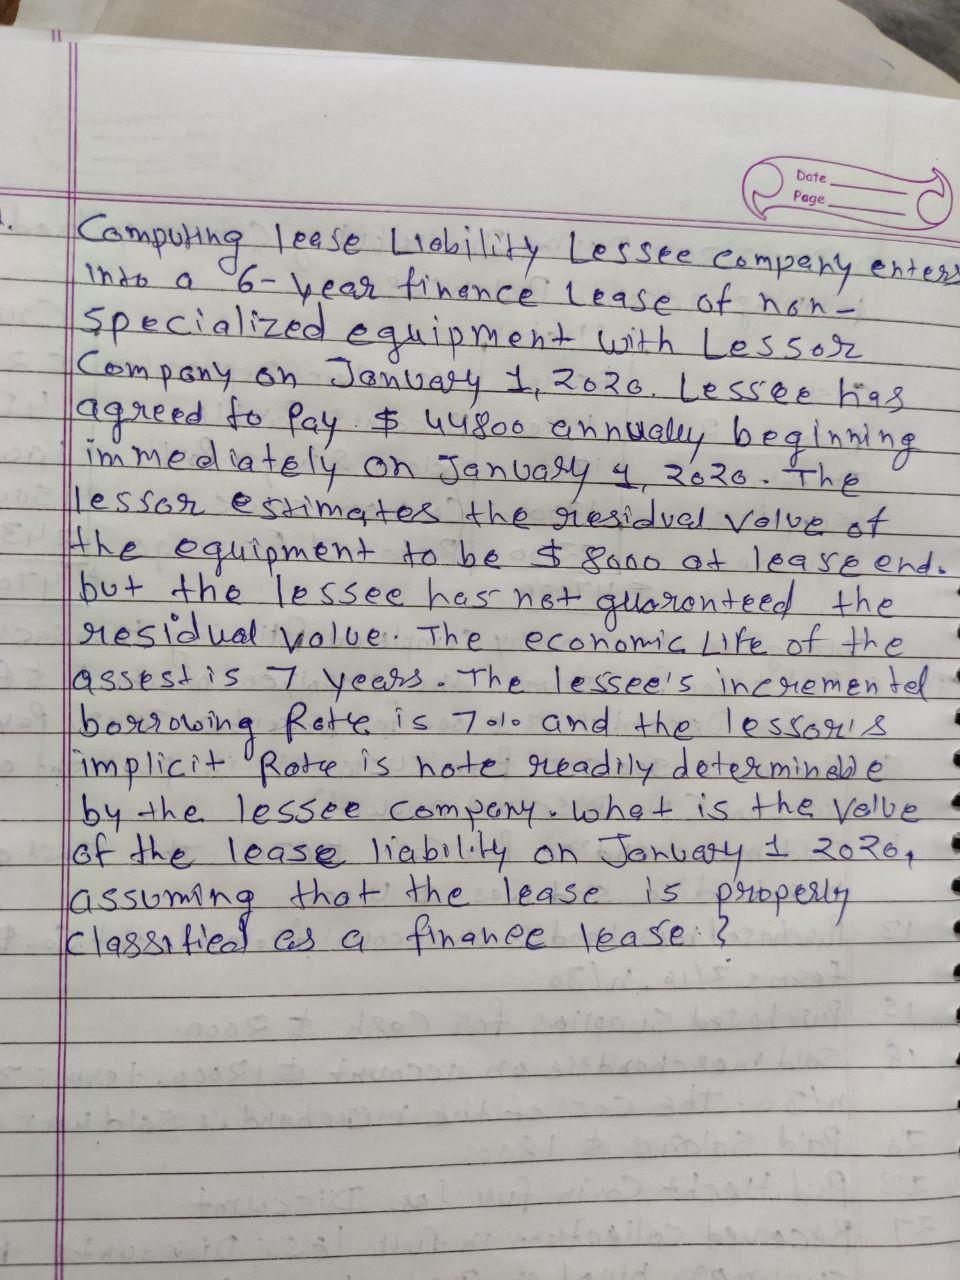 Date
Page
1.
Computing lease Liability Lessee company enters
into a 6-year finance lease of non-
specialized equipment with Lessor
Company on January 1, 2020. Lessee has
agreed to Pay $ 44800 annualy beginning
immediately on January 1, 2020. The
lessor estimates the residual value of
the equipment to be $ 8000 at lease end.
but the lessee has not guaronteed the
residual value. The economic Life of the
assest is 7 years. The lessee's incremental
borrowing Rate is 7% and the lessor's
implicit Rate is note readily determinable
by the lessee company. What is the value
of the lease liability on January 1 2020,
assuming that the lease is properly
classified as a finance lease ?